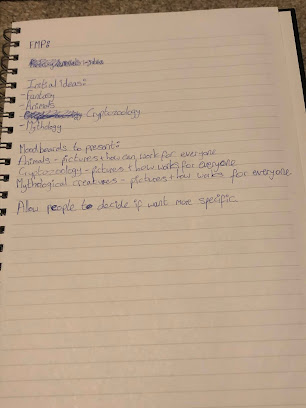 FMP:
Initial Ideas:
- Fantasy
- Animals
- Cryptozoology
- Mythology
Moodboards to present:
Animals - pictures + how can work for everyone
Crypto-zoology - pictures + how works for everyone
Mythological creatures - pictures + how works for everyone
Allow people to decide if want more specific